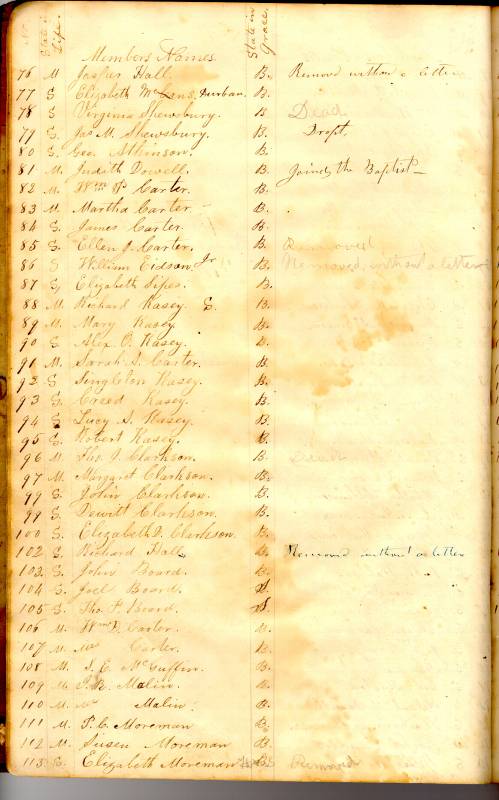 State in Life. Members Names State in Grace.
76 M Jasper Hall. B. Remov'd without a letter
77 S Elizabeth Durban. B.
78 S Virginia Shewsbury. B Dead
79 S. Jas M. Shewsbury. B. Dropt.
80 S. Geo. Atkinson. B.
81 M. Judith Dowell. B. Joined the Baptist
82 M. Wm P Carter. B.
83 M. Martha Carter. B.
84 S. James Carter. B.
85 S. Ellen J. Carter. B. Removed
86 S William Eidson, Jr B. Removed, without a letter
87 S, Elizabeth Sipes. B.
88 M Richard Kasey S. B.
89 M. Mary Kasey B.
90 S Alex O. Kasey. B.
91 M. Sarah S. Carter. B.
92 S Singleton Kasey. B.
93 S. Creed Kasey. B.
94 S Lucy S. Kasey. B.
95 S. Robert Kasey. B.
96 M Tho. J. Clarkson. B. Dead
97 M. Margaret Clarkson. B.
99 S. John Clarkson. B.
99 S. Dewitt Clarkson. B.
100 S. Elizabeth D. Clarkson. B.
102 S. Richard Hall B. Removed without a letter
103 S. John Board. B.
104 S. Joel Board. S.
105 S. Tho P. Board. S.
106 M. Wm D. Carter. B.
107 M. Mrs Carter. B.
108 M. J. E. McGuffin. B.
109 M. Malin. B.
110 M Mrs Malin. B.
111 M P. C. Moreman B.
112 M. Susen Moreman B.
113 S. Elizabeth Moreman B. Removed